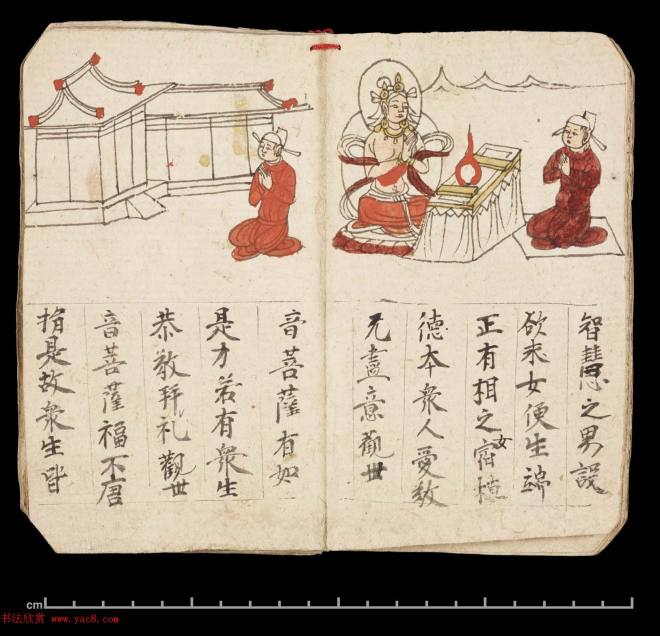 智慧之男設
欲求女便生端
正有相之女宿植
德本衆人愛敬
无盡意觀世
音菩薩有如
是力若有衆生
恭敬拜礼觀世
音菩薩福不唐
捐是故衆生皆
cm
书法欣赏 www.yac8.com